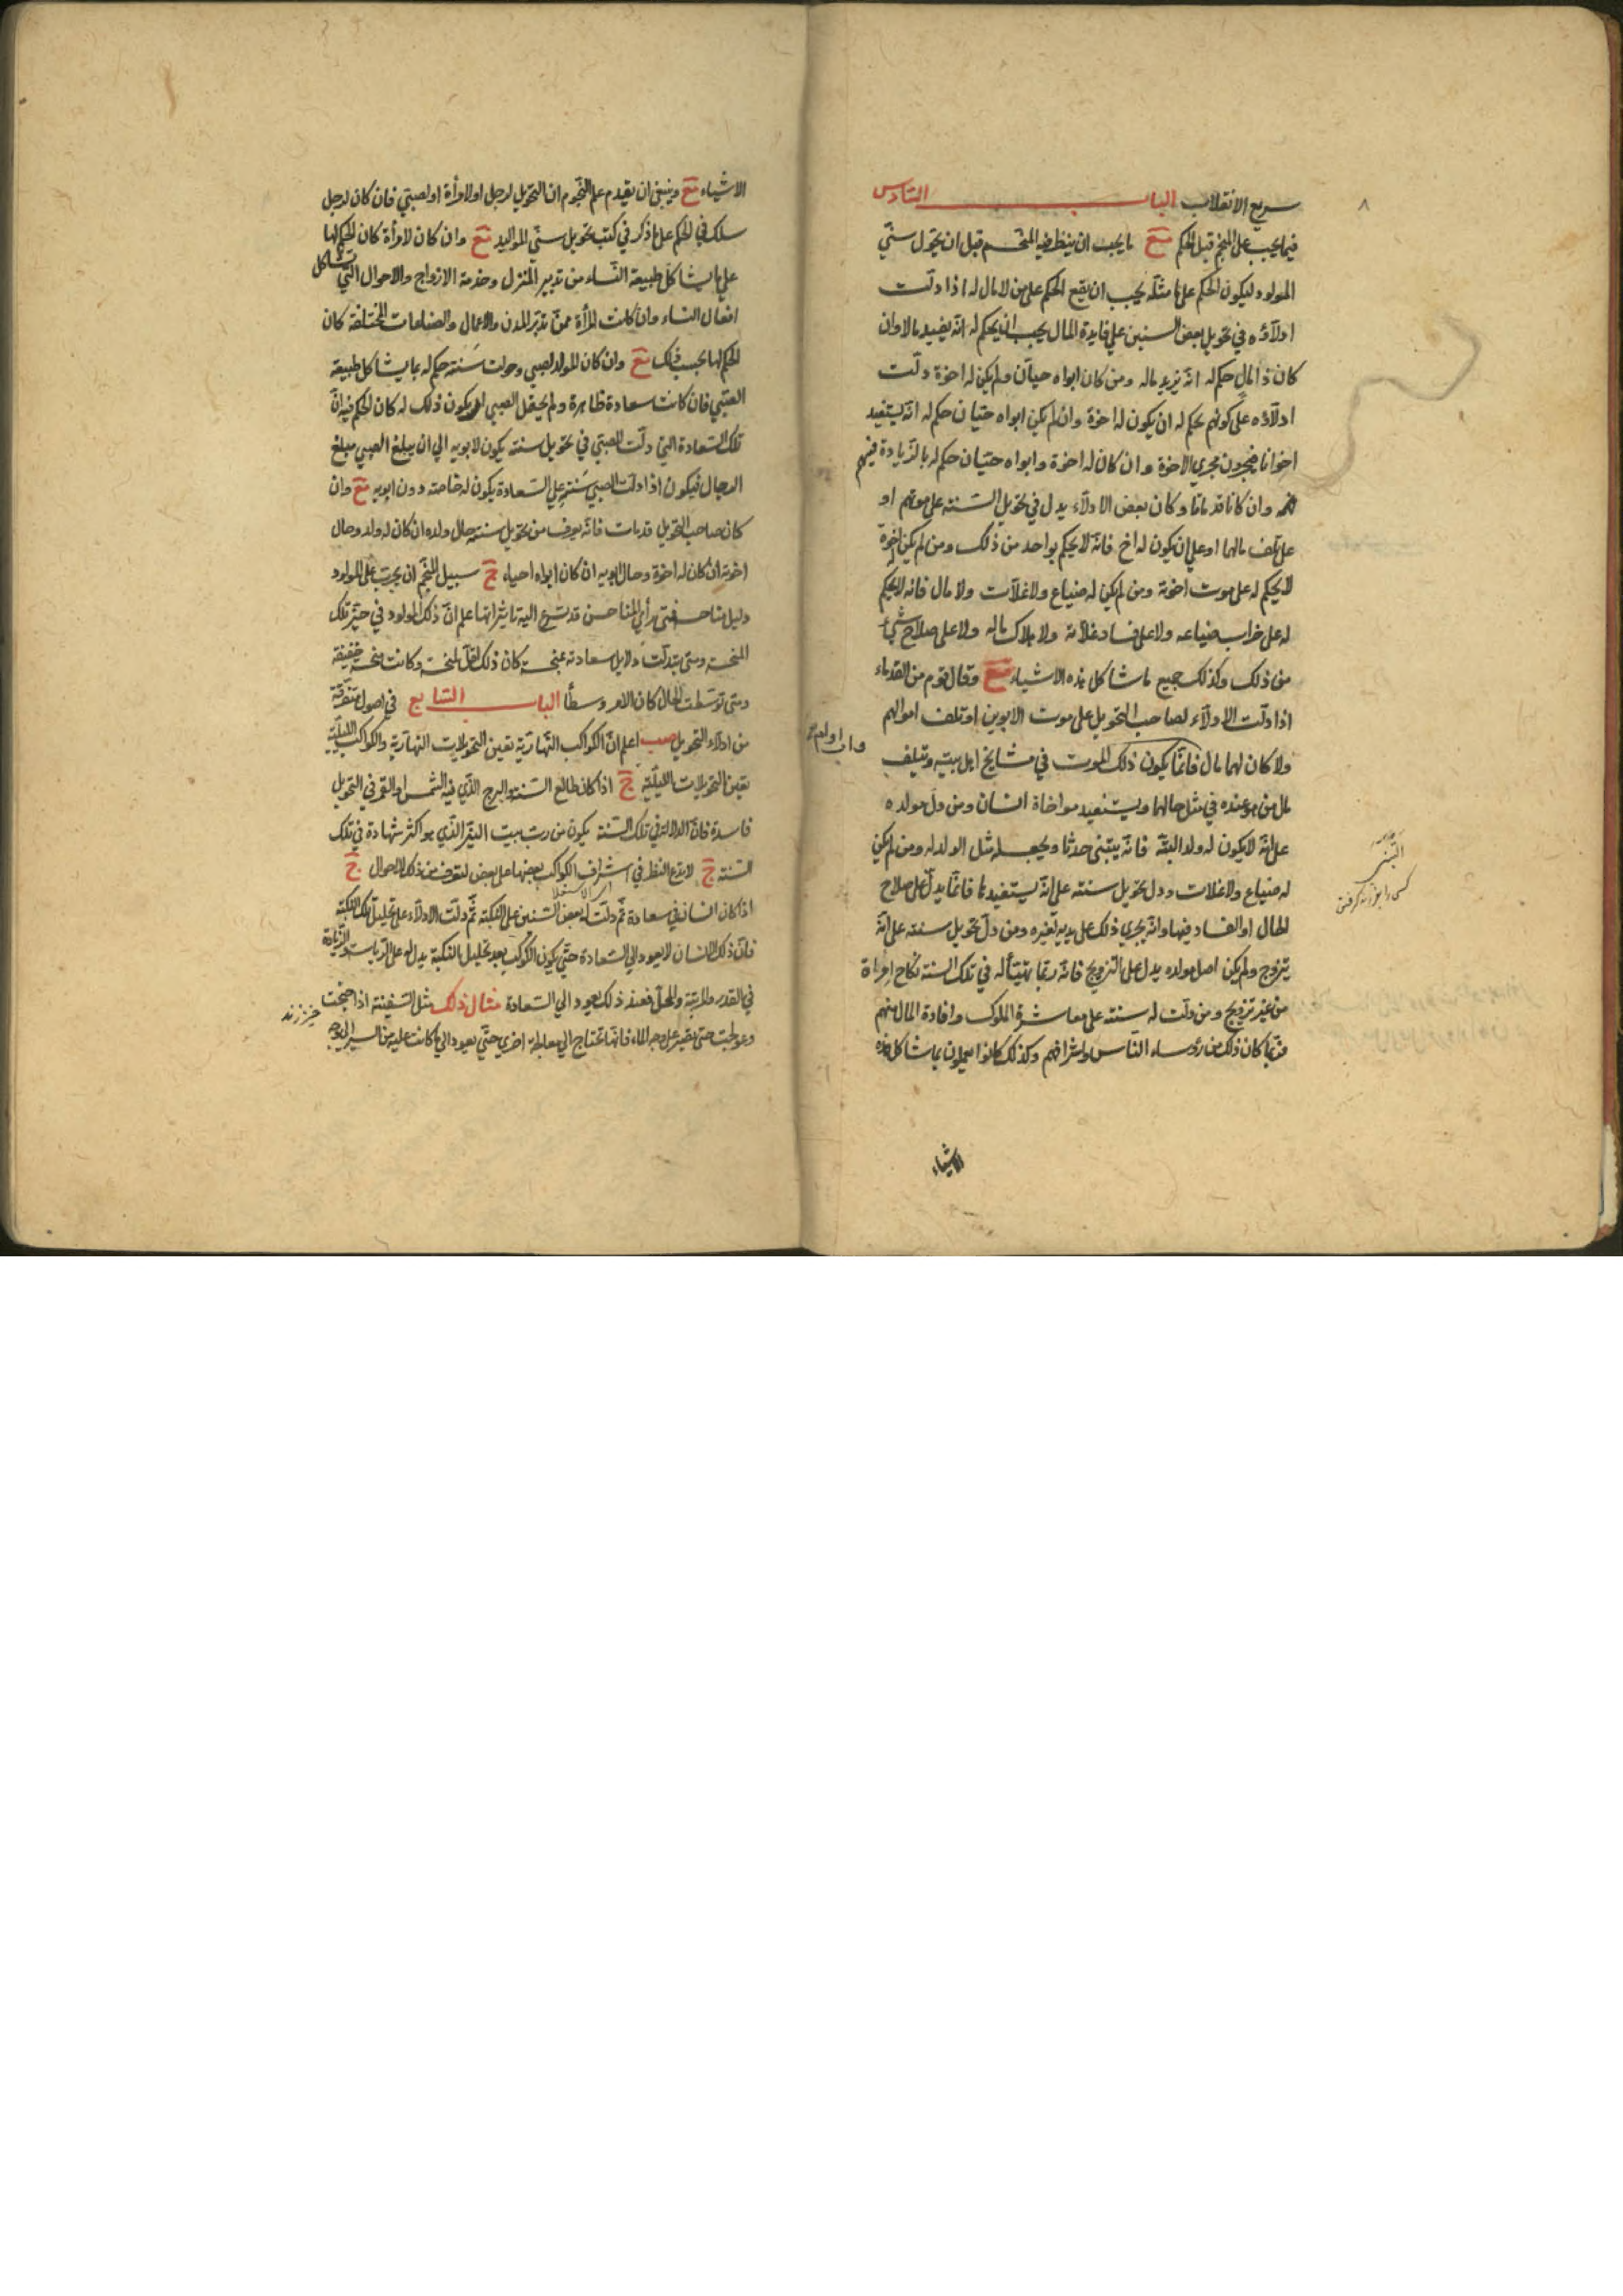 سريع الانقلاب الباب السادس
فيما يجب على المنجم قبل الحكم مع ما يجب ان ينظر فيه المنجم قبل ان يحول سنى
المولود ليكون الحكم على ما مثله يجب ان يقع الحكم على من لا مال له اذا دلت
ادلاؤه في تحويل بعض السنين على فايدة المال يجب ان يحكم له انه يفيد مالا وان
كان ذا مال حكم له انه يزيد ماله ومن كان ابواه حيان ولم يكن له اخوة دلت
ادلاؤه على كونهم يحكم له ان يكون له اخوة وان لم يكن ابواه حيان حكم له انه يستفيد
اخوانا فيجرون مجرى الاخوة وان كان له اخوة وابواه حيان حكم له بالزيادة فيهم
وان كانا قد ماتا وكان بعض الادلاء يدل في تحويل السنة على موتهم او
على تلف مالهما او على ان يكون له اخ فانه لا يحكم بواحد من ذلك ومن لم يكن له اخوة
لا يحكم له على موت اخوته ومن لم يكن له ضياع ولا غلات ولا مال فانه لا يحكم
له على خراب ضياعه ولا على فساد غلاته ولا هلاك ماله ولا على صلاح شيء
من ذلك وكذلك جميع ما شاكل هذه الاشياء مع وقال قوم من القدماء
اذا دلت الادلاء لصاحب التحويل على موت الابوين او تلف اموالهم
ولا كان لهما مال فانما يكون ذلك الموت في مشايخ اهل بيته وتلف
مال من هو عنده في مثل حالهما ويستفيد مواخاة انسان ومن دل مولده
على انه لا يكون له ولد البتة فانه يتبنى حدثا ويجعله مثل الولد له ومن لم يكن
له ضياع ولا غلات ودل تحويل سنته على انه يستفيدها فانما يدل على صلاح
الحال او الفساد فيها وانه يجرى ذلك على يديه لغيره ومن دل تحويل سنته على انه
يتزوج ولم يكن اصل مولده يدل على التزويج فانه ربما يتهيأ له في تلك السنة نكاح امراة
من غير تزويج ومن دلت له سنته على معاشرة الملوك وافادة المال منهم
فربما كان ذلك من رؤساء الناس واشرافهم وكذلك كانوا يعملون بما شاكل هذه
الاشياء
التبنى
كسى را بفرزندى گرفتن
الاشياء مع وينبغى ان يقدم علم النجوم ان التحويل لرجل او لامرأة او لصبي فان كان لرجل
سلك في الحكم على ما ذكر في كتب تحويل سني المواليد مع وان كان لامرأة كان الحكم لها
على ما يشاكل طبيعة النساء من تدبير المنزل وخدمة الازواج والاحوال التي تشاكل
افعال النساء وان كانت المرأة ممن تدبر المدن والاعمال والصناعات المختلفة كان
الحكم لها بحسب ذلك مع وان كان المولد لصبي وحولت سنته حكم له بما يشاكل طبيعة
الصبي فان كانت سعادة ظاهرة ولم يحتمل الصبي ان يكون ذلك له كان الحكم فيه ان
تلك السعادة التي دلت للصبي في تحويل سنته يكون لابويه الى ان يبلغ الصبي مبلغ
الرجال فيكون اذا دلت للصبي سنته على السعادة يكون له خاصته دون ابويه مع وان
كان صاحب التحويل قد مات فانه يعرف من تحويل سنته حال ولده ان كان له ولد وحال
اخوته ان كان له اخوة وحال ابويه ان كان ابواه احياء ج سبيل المنجم ان يجرب على المولود
دليل مناحسه فمتى رأى المناحس قد تسرع اليه تاثيراتها علم ان ذلك المولود في حيز تلك
المنحسة ومتى بتدلت دلايل سعادته بمنحسة كان ذلك اقل المنحسة وكانت منحسة خفيفة
ومتى توسطت الحال كان الامر وسطا الباب السابع في اصول متفرقة
من ادلاء التحويل صب اعلم ان الكواكب النهارية تعين التحويلات النهارية والكواكب الليلية
تعين التحويلات الليلية ج اذا كان طالع السنة والبرج الذي فيه الشمس او القمر في التحويل
فاسدة فان الدلالة في تلك السنة يكون من رب بيت النير الذي هو اكثر شهادة في تلك
السنة ج لا تدع النظر في اشراف الكواكب بعضها على بعض لتعرف من ذلك الاحوال ج
اذا كان انسان في سعادة ثم دلت له بعض السنين على النكبة ثم دلت الادلاء على تحليل تلك النكبة
فان ذلك الانسان لا يعود الى السعادة حتى يكون الكوكب بعد تحليل النكبة يدل له على الرياسة والزيادة
في القدر والمرتبة والمحل فعند ذلك يعود الى السعادة مثال ذلك مثل السفينة اذا جنحت
وعولجت حتى تصير على وجه الماء فانها تحتاج الى معالجة اخرى حتى يعود الى ما كانت عليه من السير الموجه